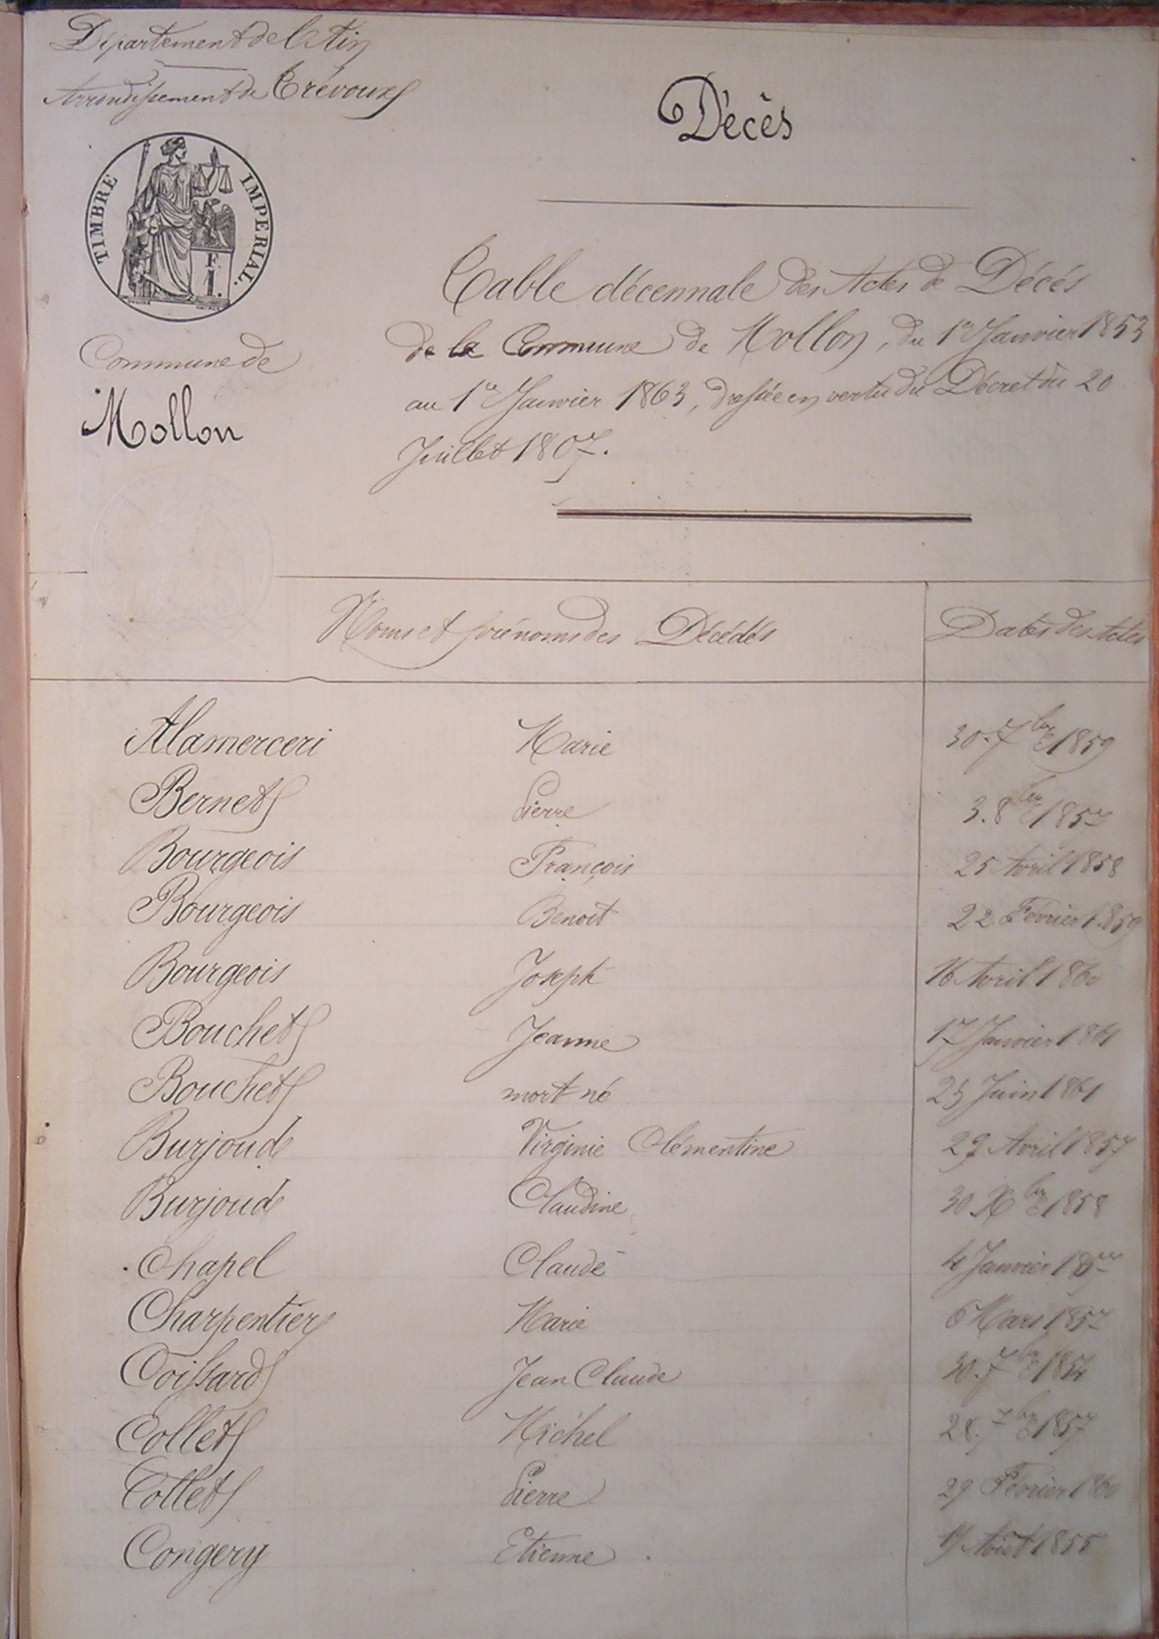 Département de l'Ain
Arrondissement de Trévoux
TIMBRE IMPERIAL.
Commune de
Mollon
Décès
Table décennale des Actes de Décès
de la Commune de Mollon, du 1er Janvier 1853
au 1er Janvier 1863, dressée en vertu du Décret du 20
Juillet 1807.
Noms et prénoms des Décédés Dates des Actes
Alamerceri Marie 30. 7bre 1859
Bernet Pierre 3. 8bre 1857
Bourgeois François 25 Avril 1858
Bourgeois Benoit 22 Février 1859
Bourgeois Joseph 16 Avril 1860
Bouchet Jeanne 17 Janvier 1861
Bouchet mort né 23 Juin 1861
Burjoud Virginie Clémentine 29 Avril 1857
Burjoud Claudine 30 Xbre 1858
Chapel Claude 4 Janvier
Charpentier Marie 6 Mars 1857
Coissard Jean Claude 30. 7bre
Collet Michel 28. 7bre 1857
Collet Pierre 29 Février 1860
Congery Etienne Août 1855